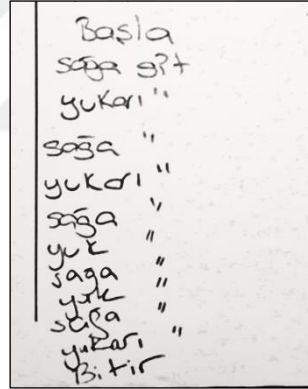 Başla
sağa git
yukarı "
sağa "
yukarı "
sağa "
yuk "
saga "
yuk "
sağa
yukarı "
Bitir